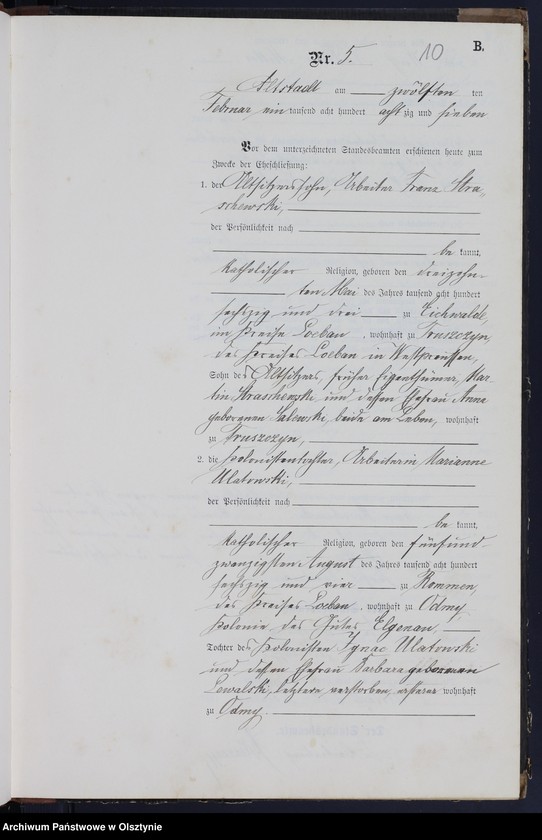 B.
10
Nr. 5.
Altstadt am zwölften ten
Februar ein tausend acht hundert achtzig und sieben
Vor dem unterzeichneten Standesbeamten erschienen heute zum
Zwecke der Eheschließung:
1. der Altsitzersohn, Arbeiter Franz Stra-
schewski,
der Persönlichkeit nach
be kannt,
katholischer Religion, geboren den dreizehn-
ten Mai des Jahres tausend acht hundert
sechszig und drei zu Eichwalde,
im Kreise Loebau, wohnhaft zu Truszczyn,
des Kreises Loebau in Westpreussen,
Sohn des Altsitzers, früher Eigenthümer, Mar-
tin Straschewski und dessen Ehefrau Anna
geborenen Zalewski, beide am Leben, wohnhaft
zu Truszczyn,
2. die Kolonistentochter, Arbeiterin Marianne
Ulatowski,
der Persönlichkeit nach
be kannt,
katholischer Religion, geboren den fünfund-
zwanzigsten August des Jahres tausend acht hundert
sechszig und vier zu Rommen,
des Kreises Loebau, wohnhaft zu Odmy
Kolonie des Gutes Elgenau,
Tochter des Kolonisten Ignac Ulatowski
und dessen Ehefrau Barbara geborenen
Lewalski, letztere verstorben, ersterer wohnhaft
zu Odmy.
Archiwum Państwowe w Olsztynie